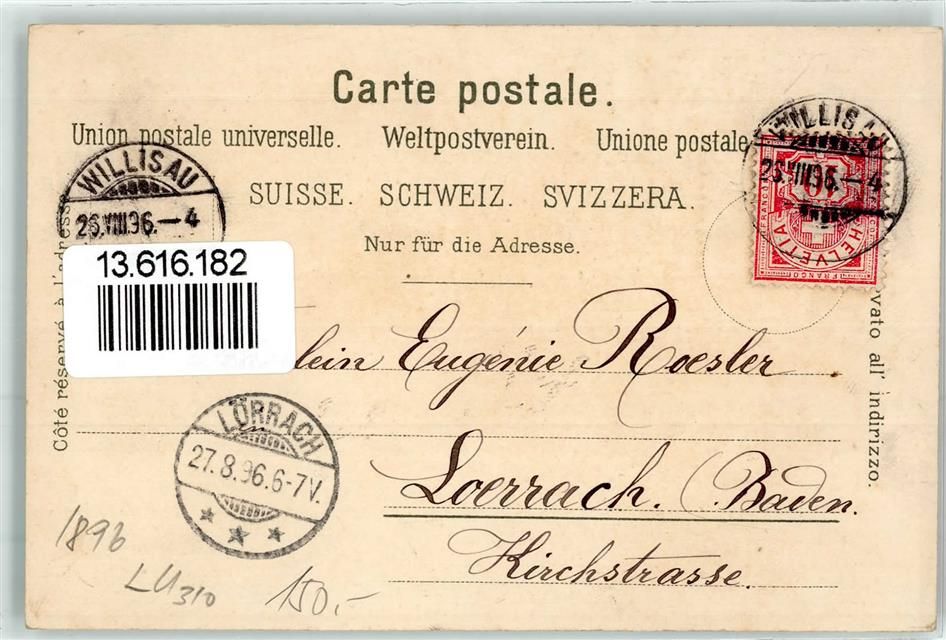 Carte postale.
Union postale universelle. Weltpostverein. Unione postale
SUISSE. SCHWEIZ. SVIZZERA.
Nur für die Adresse.
WILLISAU
26.VIII.96.—4
WILLISAU
26.VIII.96.—4
10
HELVETIA
FRANCO
FRANCO
FRANCO
13.616.182
Côté réservé à l'adresse
vato all' indirizzo.
lein Eugénie Roesler
in
Loerrach. (Baden.
Kirchstrasse.
LÖRRACH
27.8.96.6-7V.
1896
LU 310
150.-